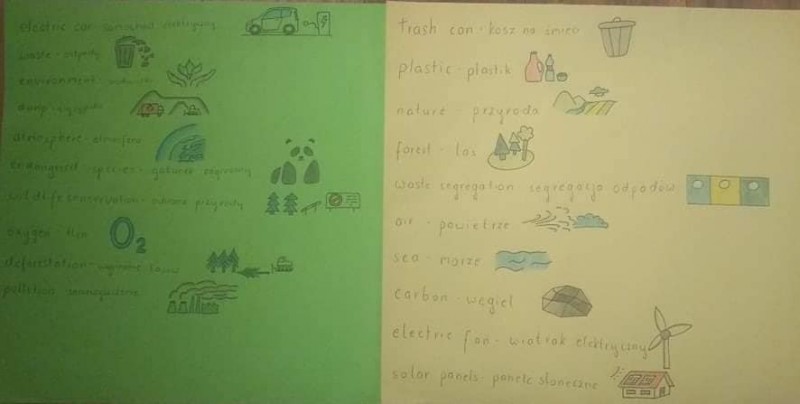 electric car samochód elektryczny
waste - odpady
environment - środowisko
dump - wysypisko
atmosphere - atmosfera
endangered species - gatunek zagrożony
wildlife conservation - ochrona przyrody
oxygen - tlen
O₂
deforestation - wycinanie lasów
pollution zanieczyszczenie
trash can - kosz na śmieci
plastic - plastik
nature - przyroda
forest - las
waste segregation segregacja odpadów
air - powietrze
sea - morze
carbon - węgiel
electric fan - wiatrak elektryczny
solar panels - panele słoneczne